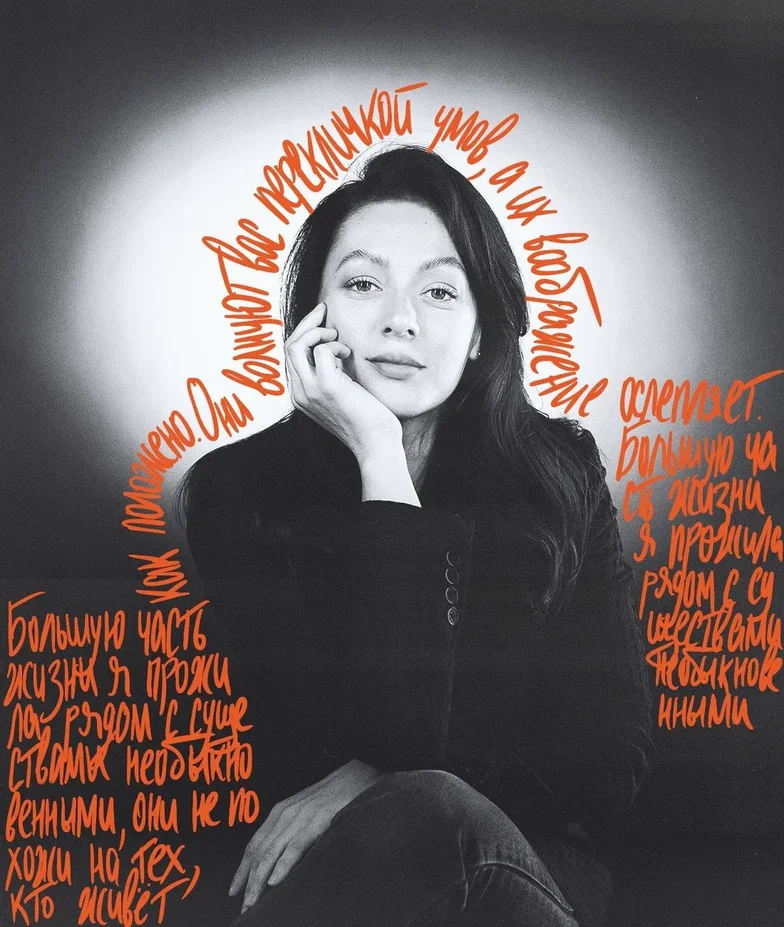 Большую часть
жизни я прожи
ла рядом с суще
ствами необыкно
венными, они не по
хожи на тех,
кто живёт
как положено. Они волнуют вас перекличкой умов, а их воображение
ослепляет.
Большую ча
сть жизни
я прожила
рядом с су
ществами
необыкнове
нными